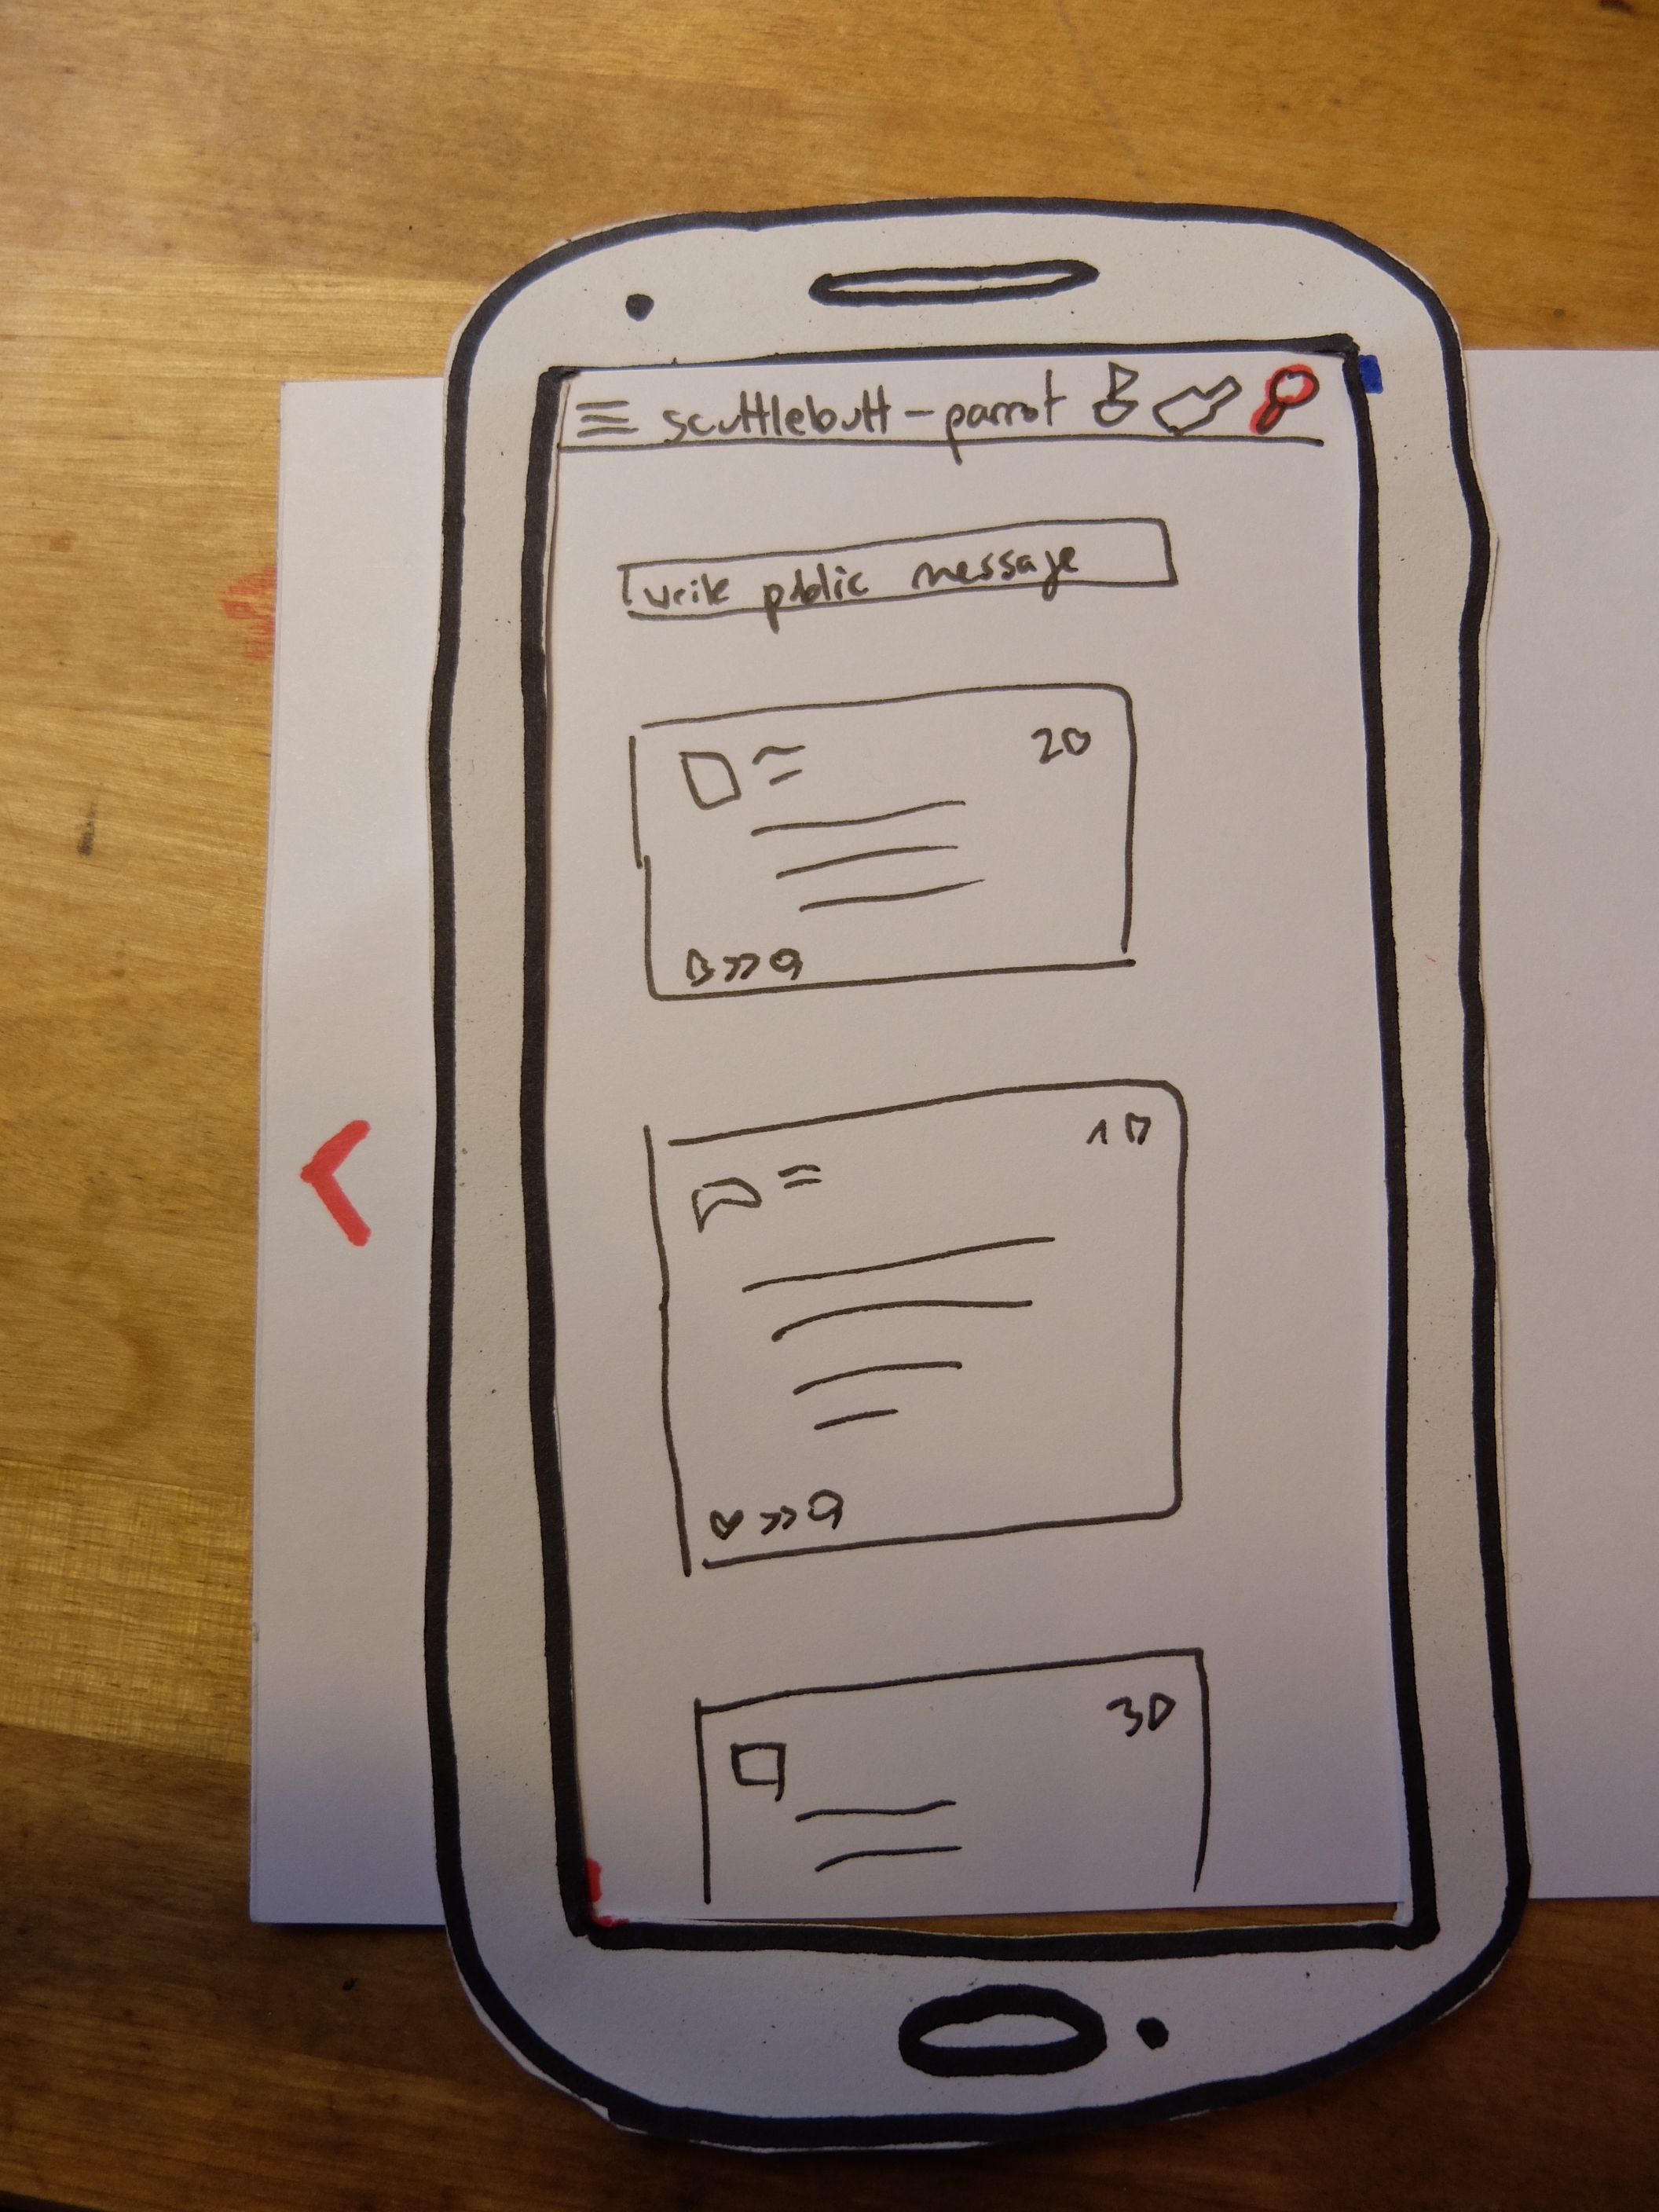 scuttlebutt-parrot
write public message
2D
>>
1D
>>
3D